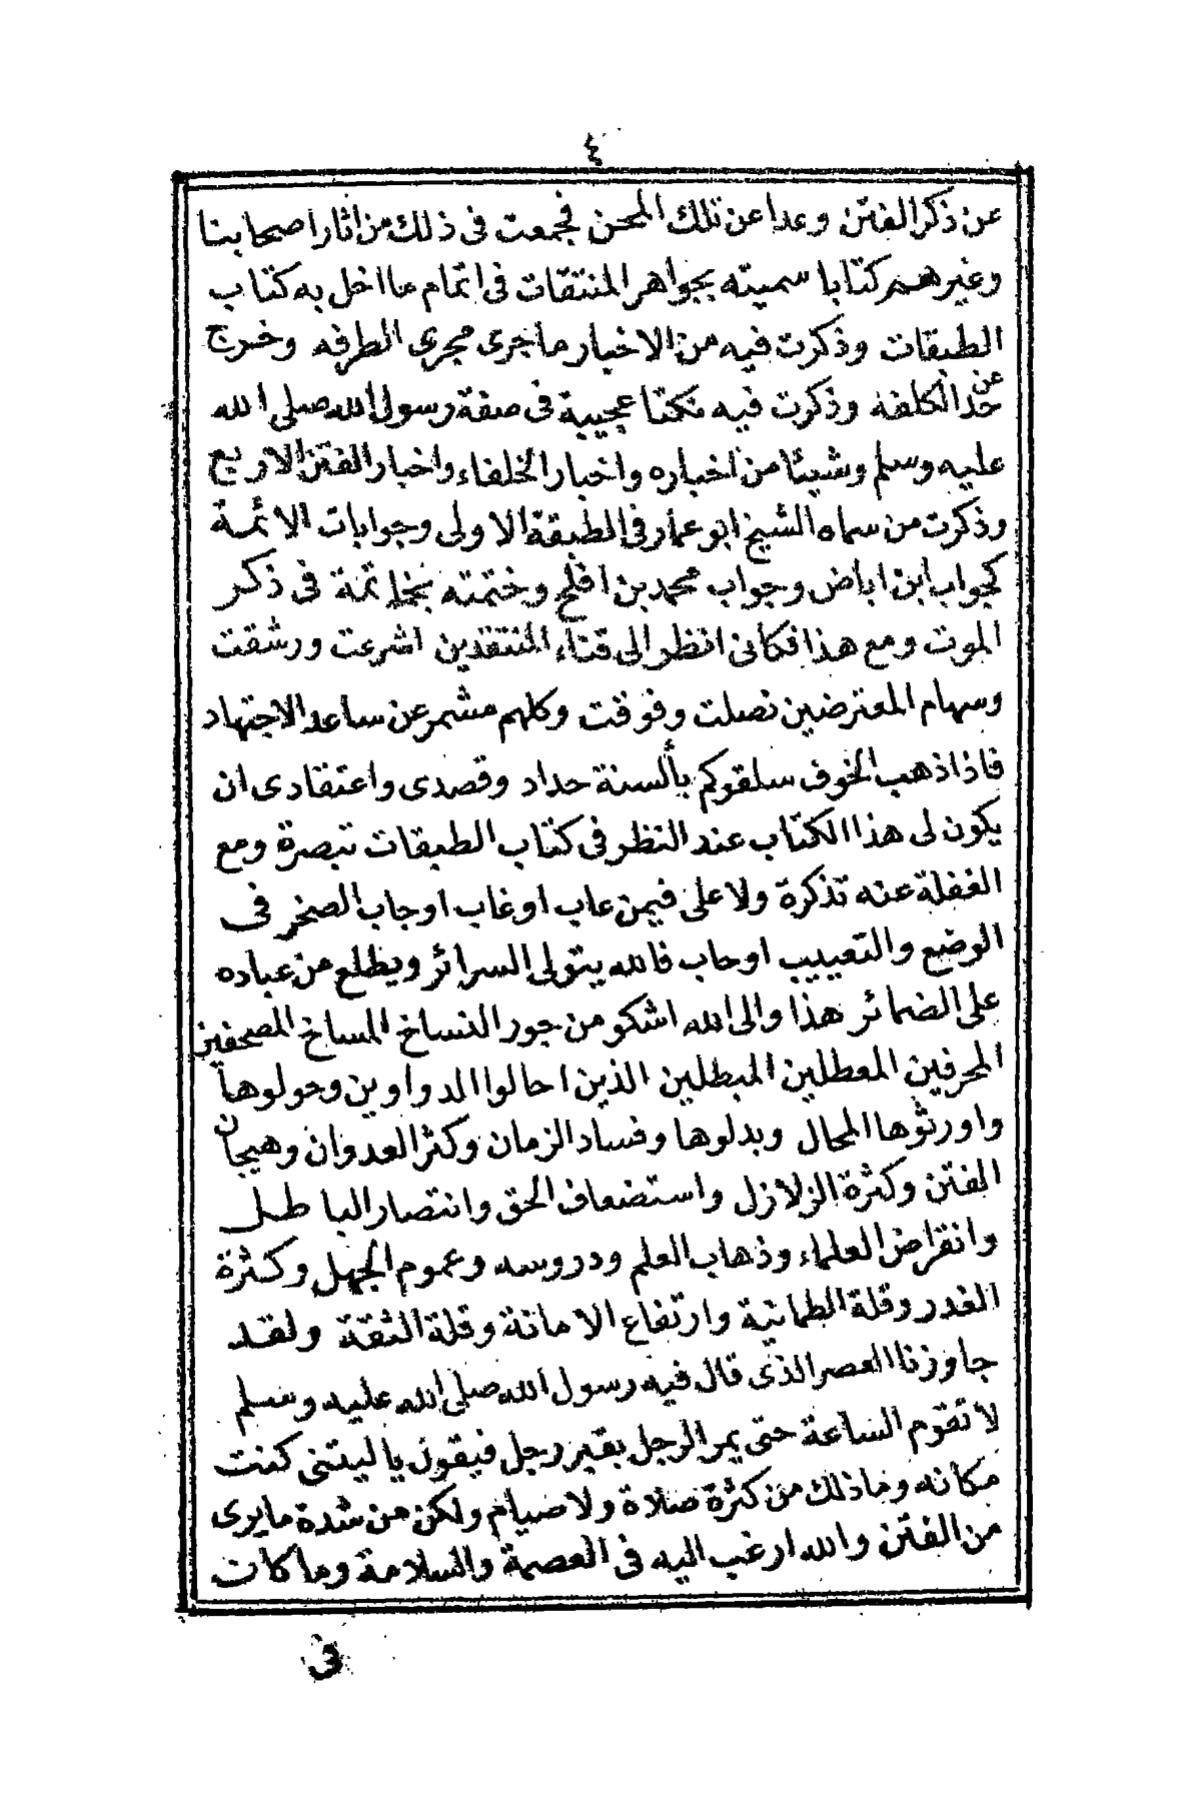 ٤
عن ذكر الفتن وعدا عن تلك المحن فجمعت فى ذلك من اثار اصحابنا
وغيرهم كتابا سميته بجواهر المنتقات فى اتمام ما اخل به كتاب
الطبقات وذكرت فيه من الاخبار ما جرى مجرى الطرفه وخرج
عن
حد الكلفه وذكرت فيه نكتا عجيبة فى صفة رسول الله صلى الله
عليه وسلم وشيئا من اخباره واخبار الخلفاء واخبار الفتن الاربع
وذكرت من سماه الشيخ ابو عمار فى الطبقة الاولى وجوابات الائمة
كجواب ابن اباض وجواب محمد بن افلح وختمته بخاتمة فى ذكر
الموت ومع هذا فكانى انظر الى قناء المنتقدين اشرعت ورشقت
وسهام المعترضين نصلت وفوقت وكلهم مشمر عن ساعد الاجتهاد
فاذا ذهب الخوف سلقوكم بألسنة حداد وقصدى واعتقادى ان
يكون لى هذا الكتاب عند النظر فى كتاب الطبقات تبصرة ومع
الغفلة عنه تذكرة ولا على فيمن عاب او غاب او جاب الصخر فى
الوضع والتعييب او حاب فالله يتولى السرائر ويطلع من عباده
على الضمائر هذا والى الله اشكو من جور النساخ المساخ المصحفين
المحرفين المعطلين المبطلين الذين احالوا الدواوين وحولوها
واورثوها المحال وبدلوها وفساد الزمان وكثر العدوان وهيجان
الفتن وكثرة الزلازل واستضعاف الحق وانتصار الباطل
وانقراض العلماء وذهاب العلم ودروسه وعموم الجهل وكثرة
الغدر وقلة الطمانية وارتفاع الامانة وقلة الثقة ولقد
جاوزنا العصر الذى قال فيه رسول الله صلى الله عليه وسلم
لا تقوم الساعة حتى يمر الرجل بقبر رجل فيقول ياليتنى كنت
مكانه وما ذلك من كثرة صلاة ولا صيام ولكن من شدة ما يرى
من الفتن والله ارغب اليه فى العصمة والسلامة وما كان
فى